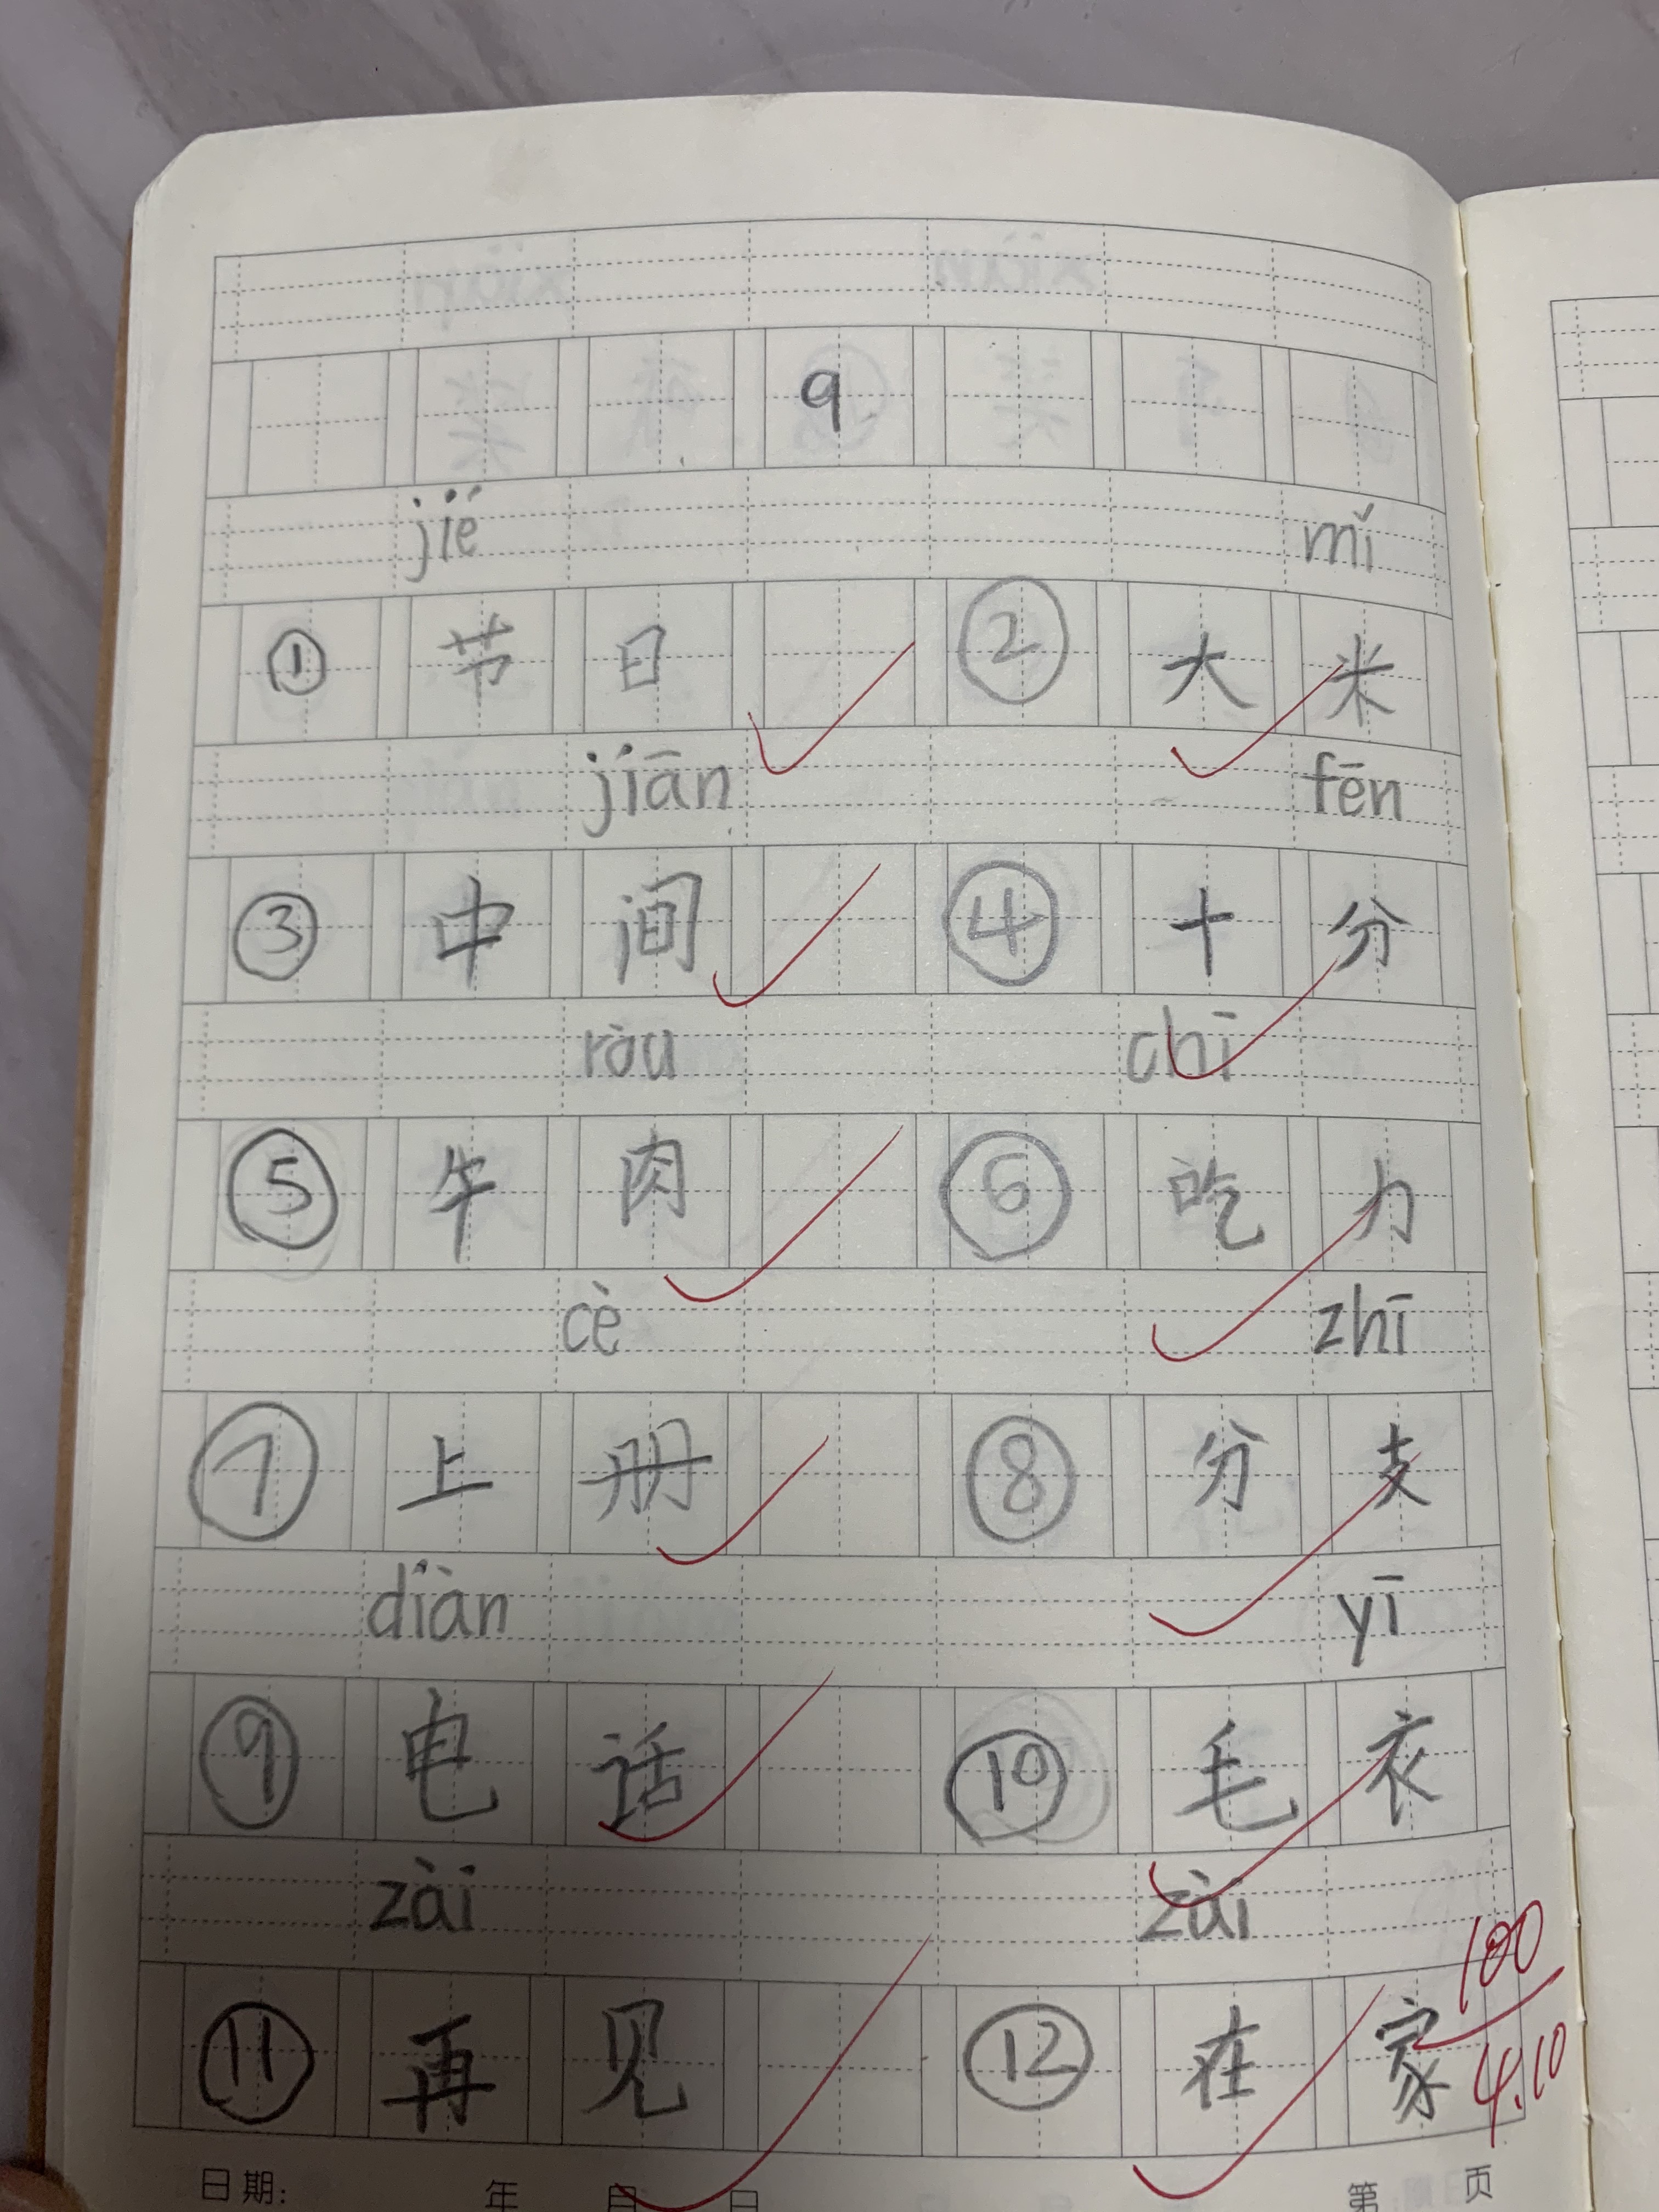 9
jié mǐ
① 节日 ② 大米
jiān fēn
③ 中间 ④ 十分
ròu chī
⑤ 牛肉 ⑥ 吃力
cè zhī
⑦ 上册 ⑧ 分支
diàn yī
⑨ 电话 ⑩ 毛衣
zài zài
⑪ 再见 ⑫ 在家
100
4.10
日期: 年 月 日 第 页